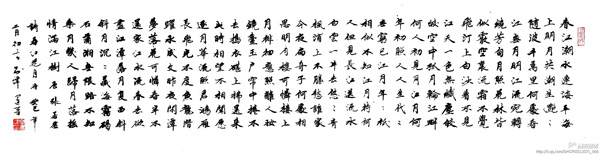 春江潮水連海平海
上明月共潮生灧灧
随波千萬里何處春
江無月明江流宛轉
繞芳甸月照花林皆
似霰空裏流霜不覺
飛汀上白沙看不見
江天一色無纖塵皎
皎空中孤月輪江畔
何人初見月江月何
年初照人人生代代
無窮已江月年年
相似不知江月待何
人但見長江送流水
白雲一片去悠悠青
楓浦上不勝愁誰家
今夜扁舟子何處相
思明月樓可憐樓上
月徘徊應照離人妝
鏡臺玉戶簾中捲不
去擣衣砧上拂還來
此時相望不相聞願
逐月華流照君鴻雁
長飛光不度魚龍潛
躍水成文昨夜閒潭
夢落花可憐春半不
還家江水流春去欲
盡江潭落月復西斜
斜月沉沉藏海霧碣
石瀟湘無限路不知
乘月幾人歸落月搖
情滿江樹 唐張若虚
詩春江花月夜
二月初二